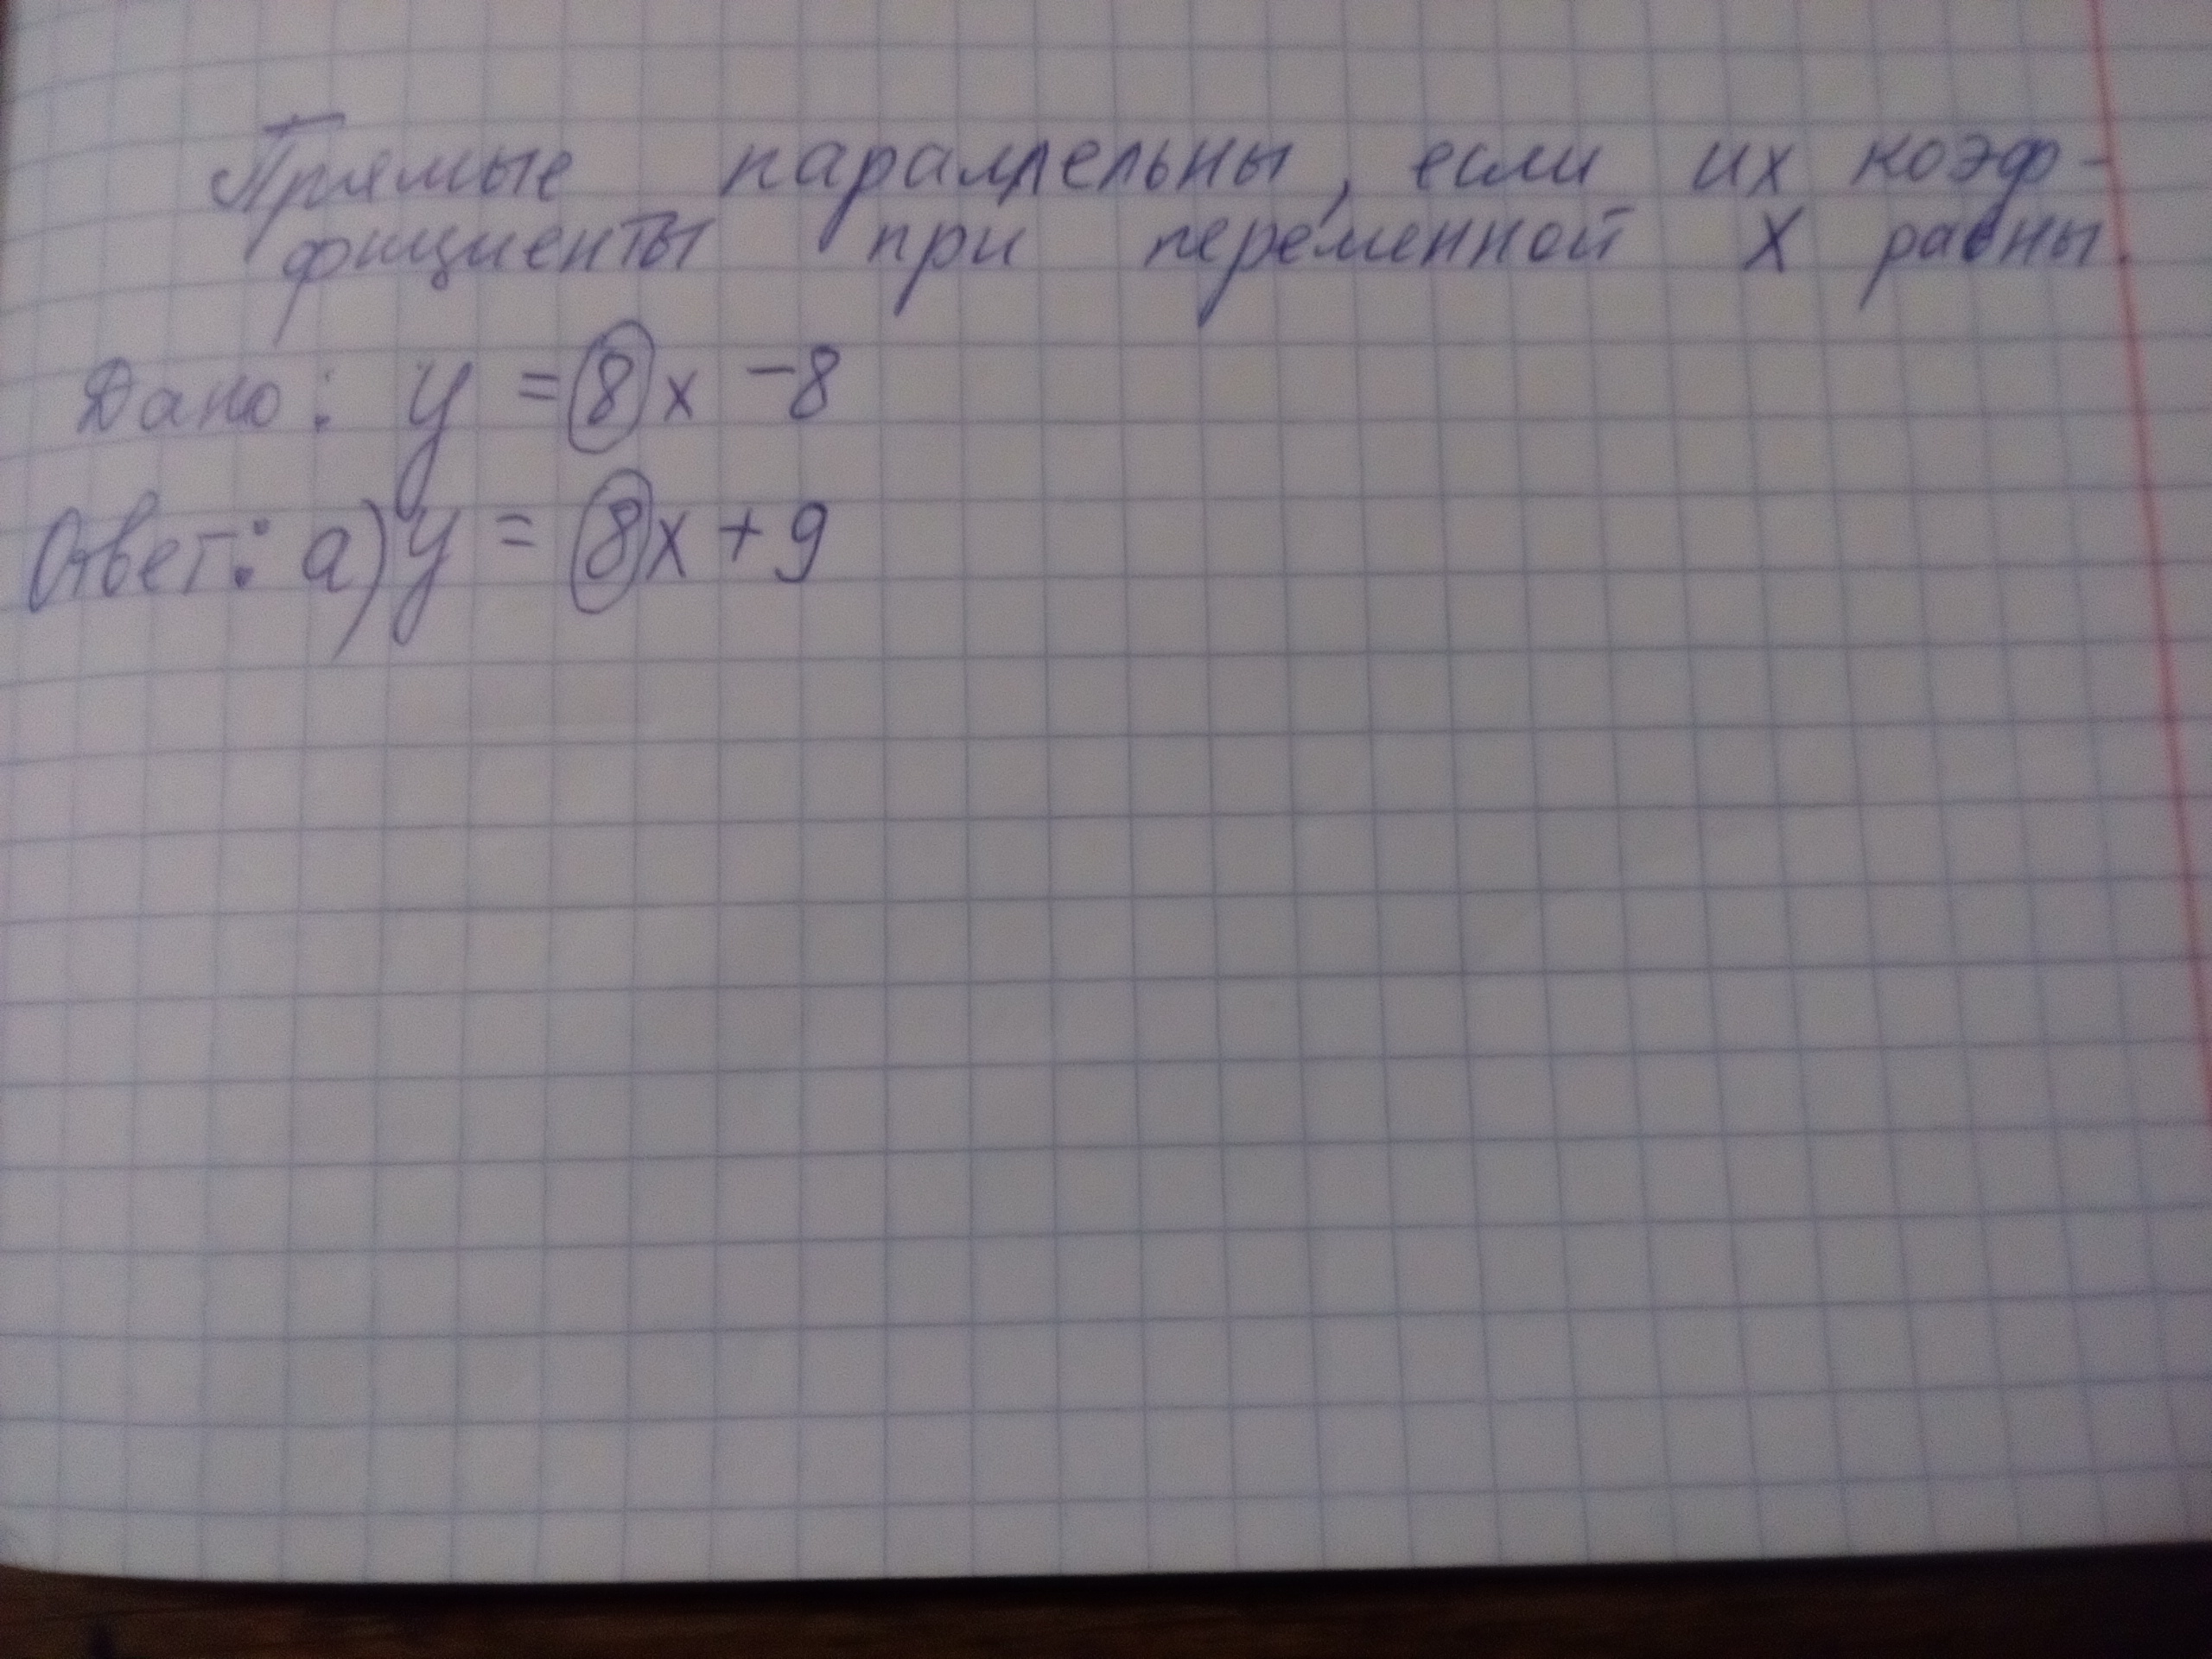 Прямые параллельны, если их коэф-
фициенты при переменной х равны.
Дано: y = 8x - 8
Ответ: а) y = 8x + 9